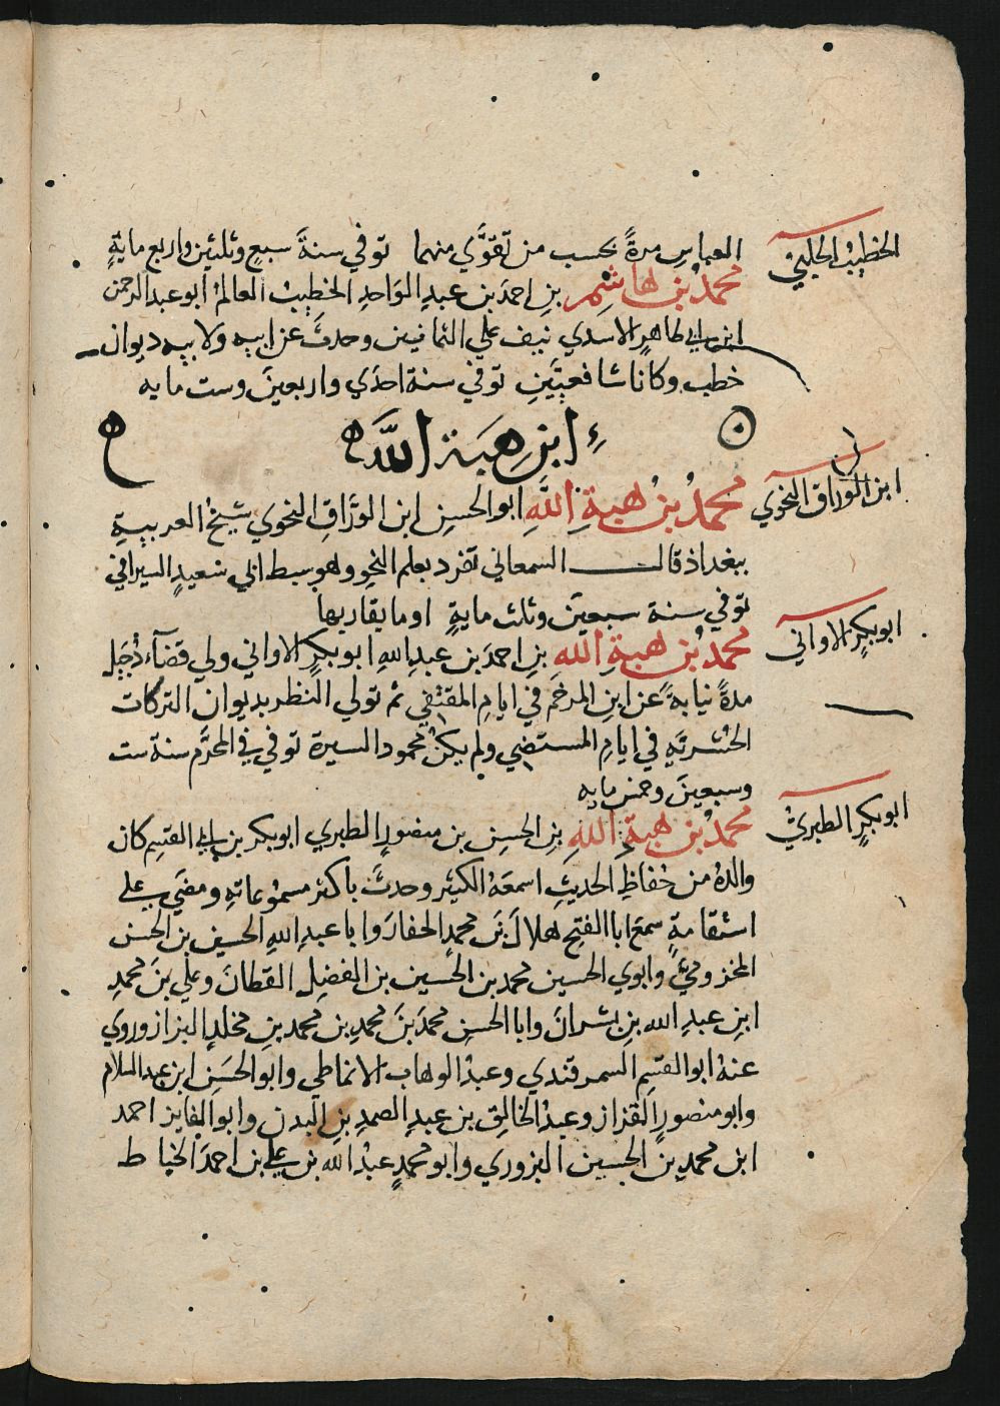 العباس مرةً بحسب من تقوَّي منهما توفي سنةَ سبعٍ وثلثين واربع مايةٍ
الخطيبُ الحلبيُّ
محمدُ بن هاشمِ بنِ احمدَ بن عبدِ الوَاحدِ الخطيبُ العالمُ ابو عبد الرحمن
ابن ابي طاهرٍ الاسدي نيف علي الثمانين وحدثَ عن ابيه ولابيه ديوان
خطب وكانا شافعيَّينِ توفي سنة احدَي واربعينَ وست مايه
ابن هبَة اللَّه
ابن الورَّاق النحوي
محمدُ بنُ هبةِ اللَّهِ ابو الحسنِ ابن الورَّاقِ النحوي شيخُ العربيةِ
ببغداذ قال السمعاني تفرد بعلم النحوِ وهو سبط ابي سَعيدٍ السيرافي
توفي سنة سبعينَ وثلث مايةٍ او ما يقاربها
ابو بكرٍ الاواني
محمدُ بنُ هبةِ اللهِ بنِ احمدَ بن عبدِ اللهِ ابو بكرٍ الاواني ولي قضآءَ دُجَيل
مدةً نيابةً عن ابنِ المرخم في ايامِ المقتفي ثم تولي النظر بديوان التركات
الحشريَّهِ في ايامِ المستضي ولم يكنْ محمود السيرة توفي في المحرَّم سنة ست
وسبعينَ وخمس مايه
ابو بكرٍ الطبريُّ
محمدُ بنُ هبةِ اللهِ بنِ الحسنِ بن منصورٍ الطبري ابو بكر بن ابي القسِم كان
والدهُ من حُفاظِ الحديثِ اسمعَهُ الكثيرَ وحدثَ باكثر مسموُعاتهِ ومضَي علي
استقامةٍ سمعَ ابا الفتحِ هلالَ بنَ محمدٍ الحفارَ وابا عبدِ اللهِ الحسين بن الحسن
المخزوميَّ وابوي الحسين محمد بن الحسين بن الفضلِ القطانَ وعليَ بنَ محمدِ
ابنِ عبدِ الله بنِ بشرانَ وابا الحسنِ محمدَ بنَ محمدِ بن محمد بنِ مخلدٍ البزاز وروي
عنهُ ابو القسِم السمرقندي وعبدُ الوهاب الانماطي وابو الحسَنِ ابن عبد السلام
وابو منصورٍ القزاز وعبدُ الخالِق بن عبدِ الصمدِ بنِ البدن وابو الفايز احمد
ابن محمدِ بن الحسين البزوري وابو محمدٍ عبدُ الله بن علي بن احمدَ الخياط